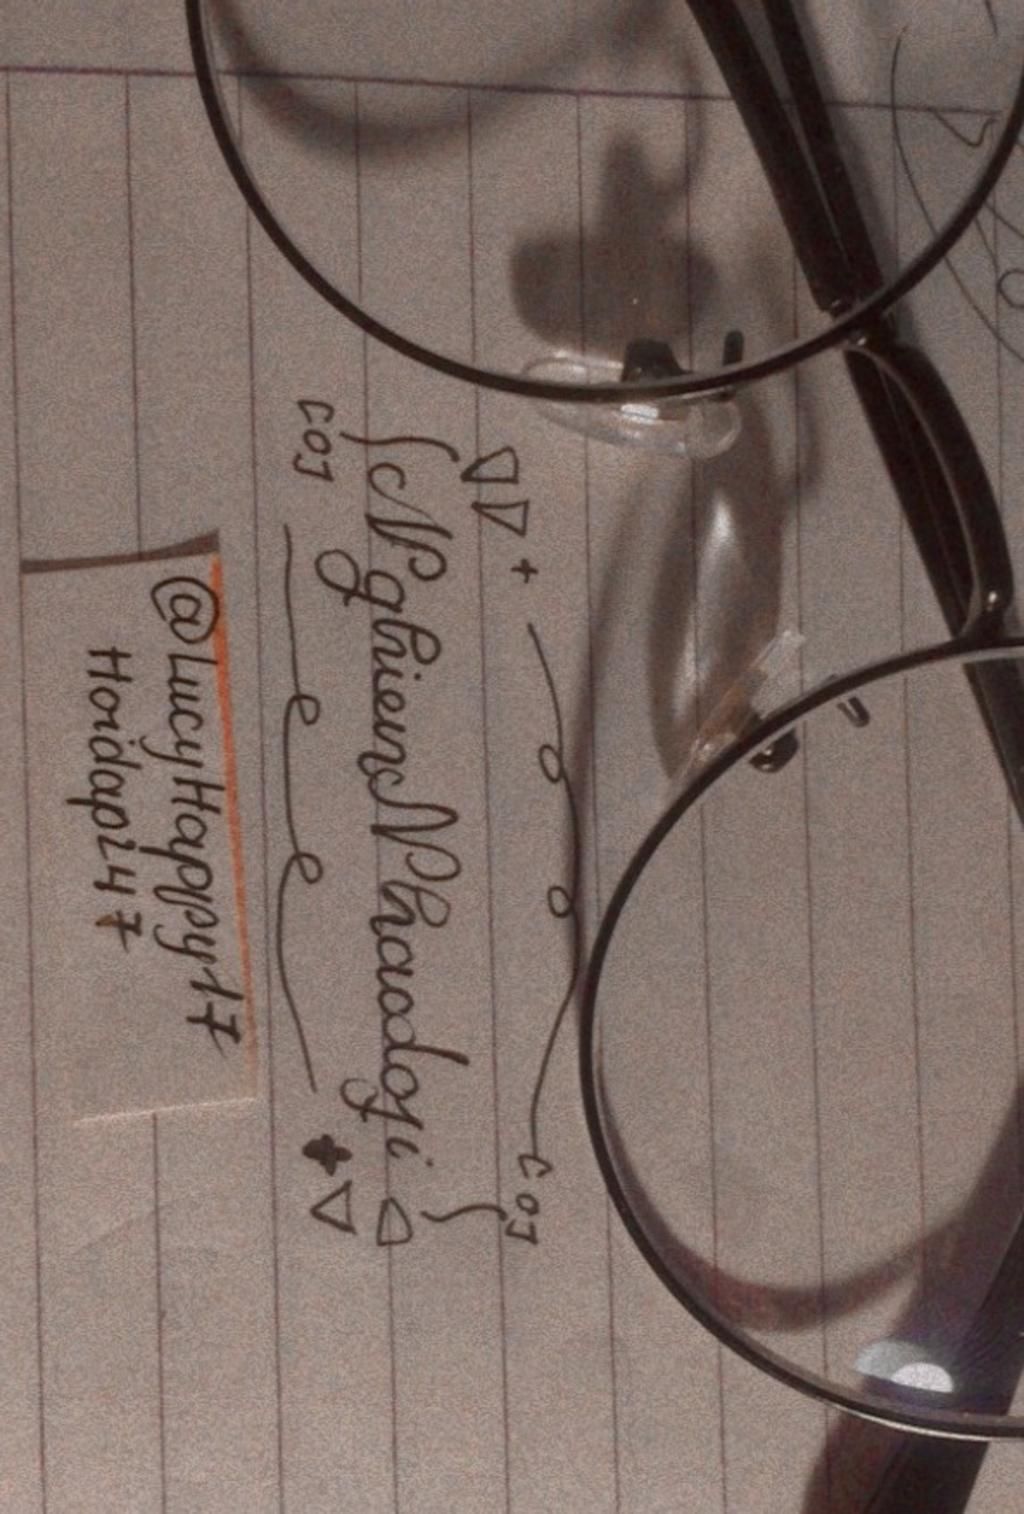 NghienNhaodgi
@LucyHappy17
Hoidap247